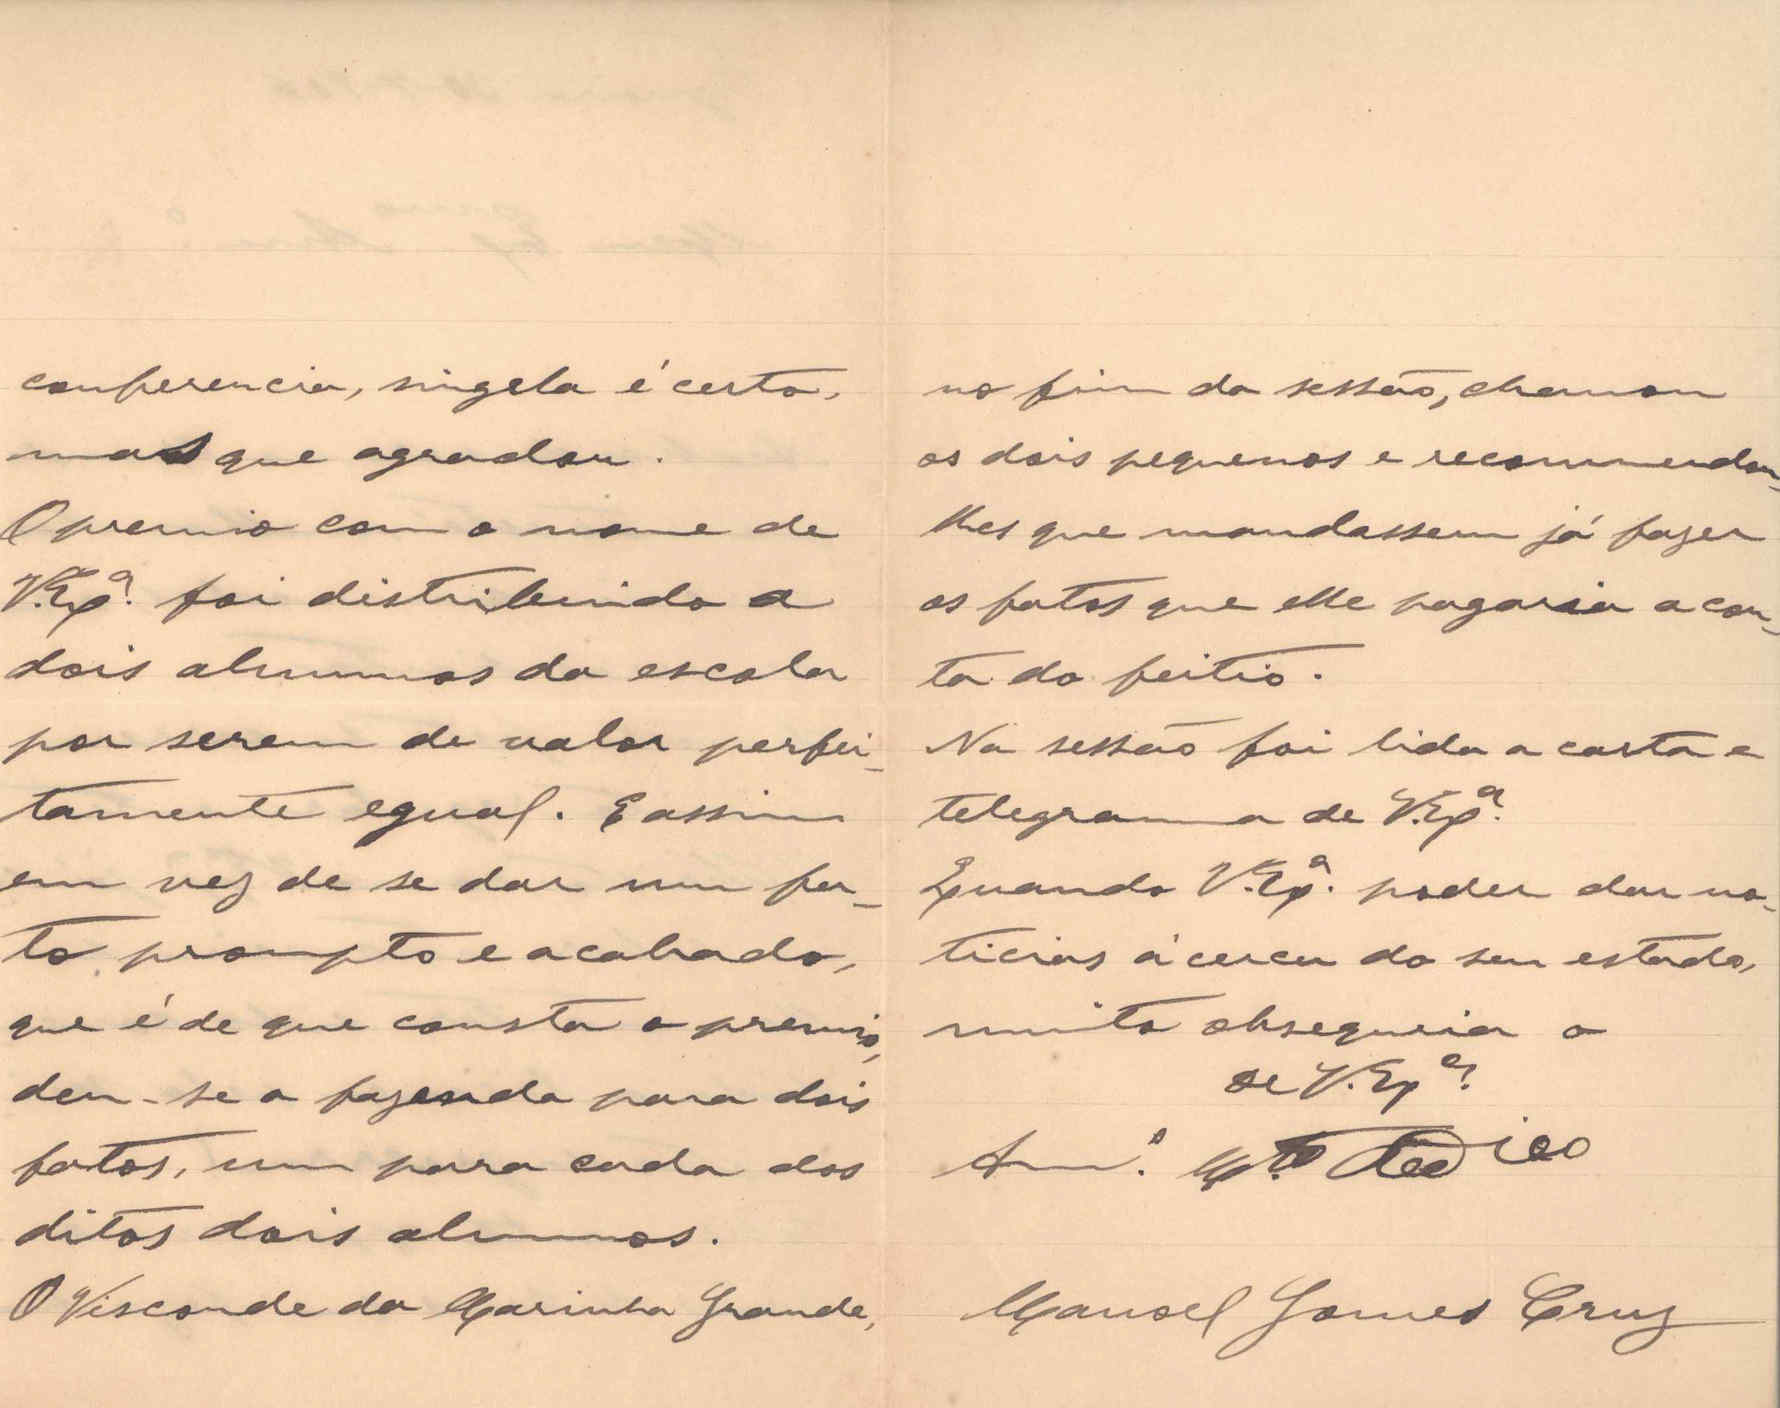 conferencia, singela é certo,
mas que agradou.
O premio com o nome de
V. Exª. foi distribuido a
dois alumnos da escola
por serem de valor perfei-
tamente egual. E assim
em vez de se dar um fa-
to prompto e acabado,
que é de que consta o premio,
deu-se a fazenda para dois
fatos, um para cada dos
ditos dois alumnos.
O Visconde da Marinha Grande,
no fim da sessão, chamou
os dois pequenos e recommendou-
lhes que mandassem já fazer
os fatos que elle pagaria a con-
ta do feitio.
Na sessão foi lida a carta e
telegramma de V. Exª.
Quando V. Exª. poder dar no-
ticias ácerca do seu estado,
muito obsequeia o
de V. Exª.
Amº. Mtº. Dedico
Manoel Gomes Cruz